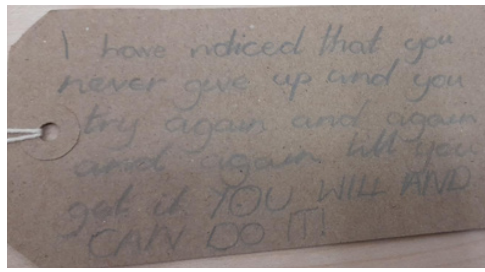 I have noticed that you
never give up and you
try again and again
and again till you
get it YOU WILL AND
CAN DO IT!